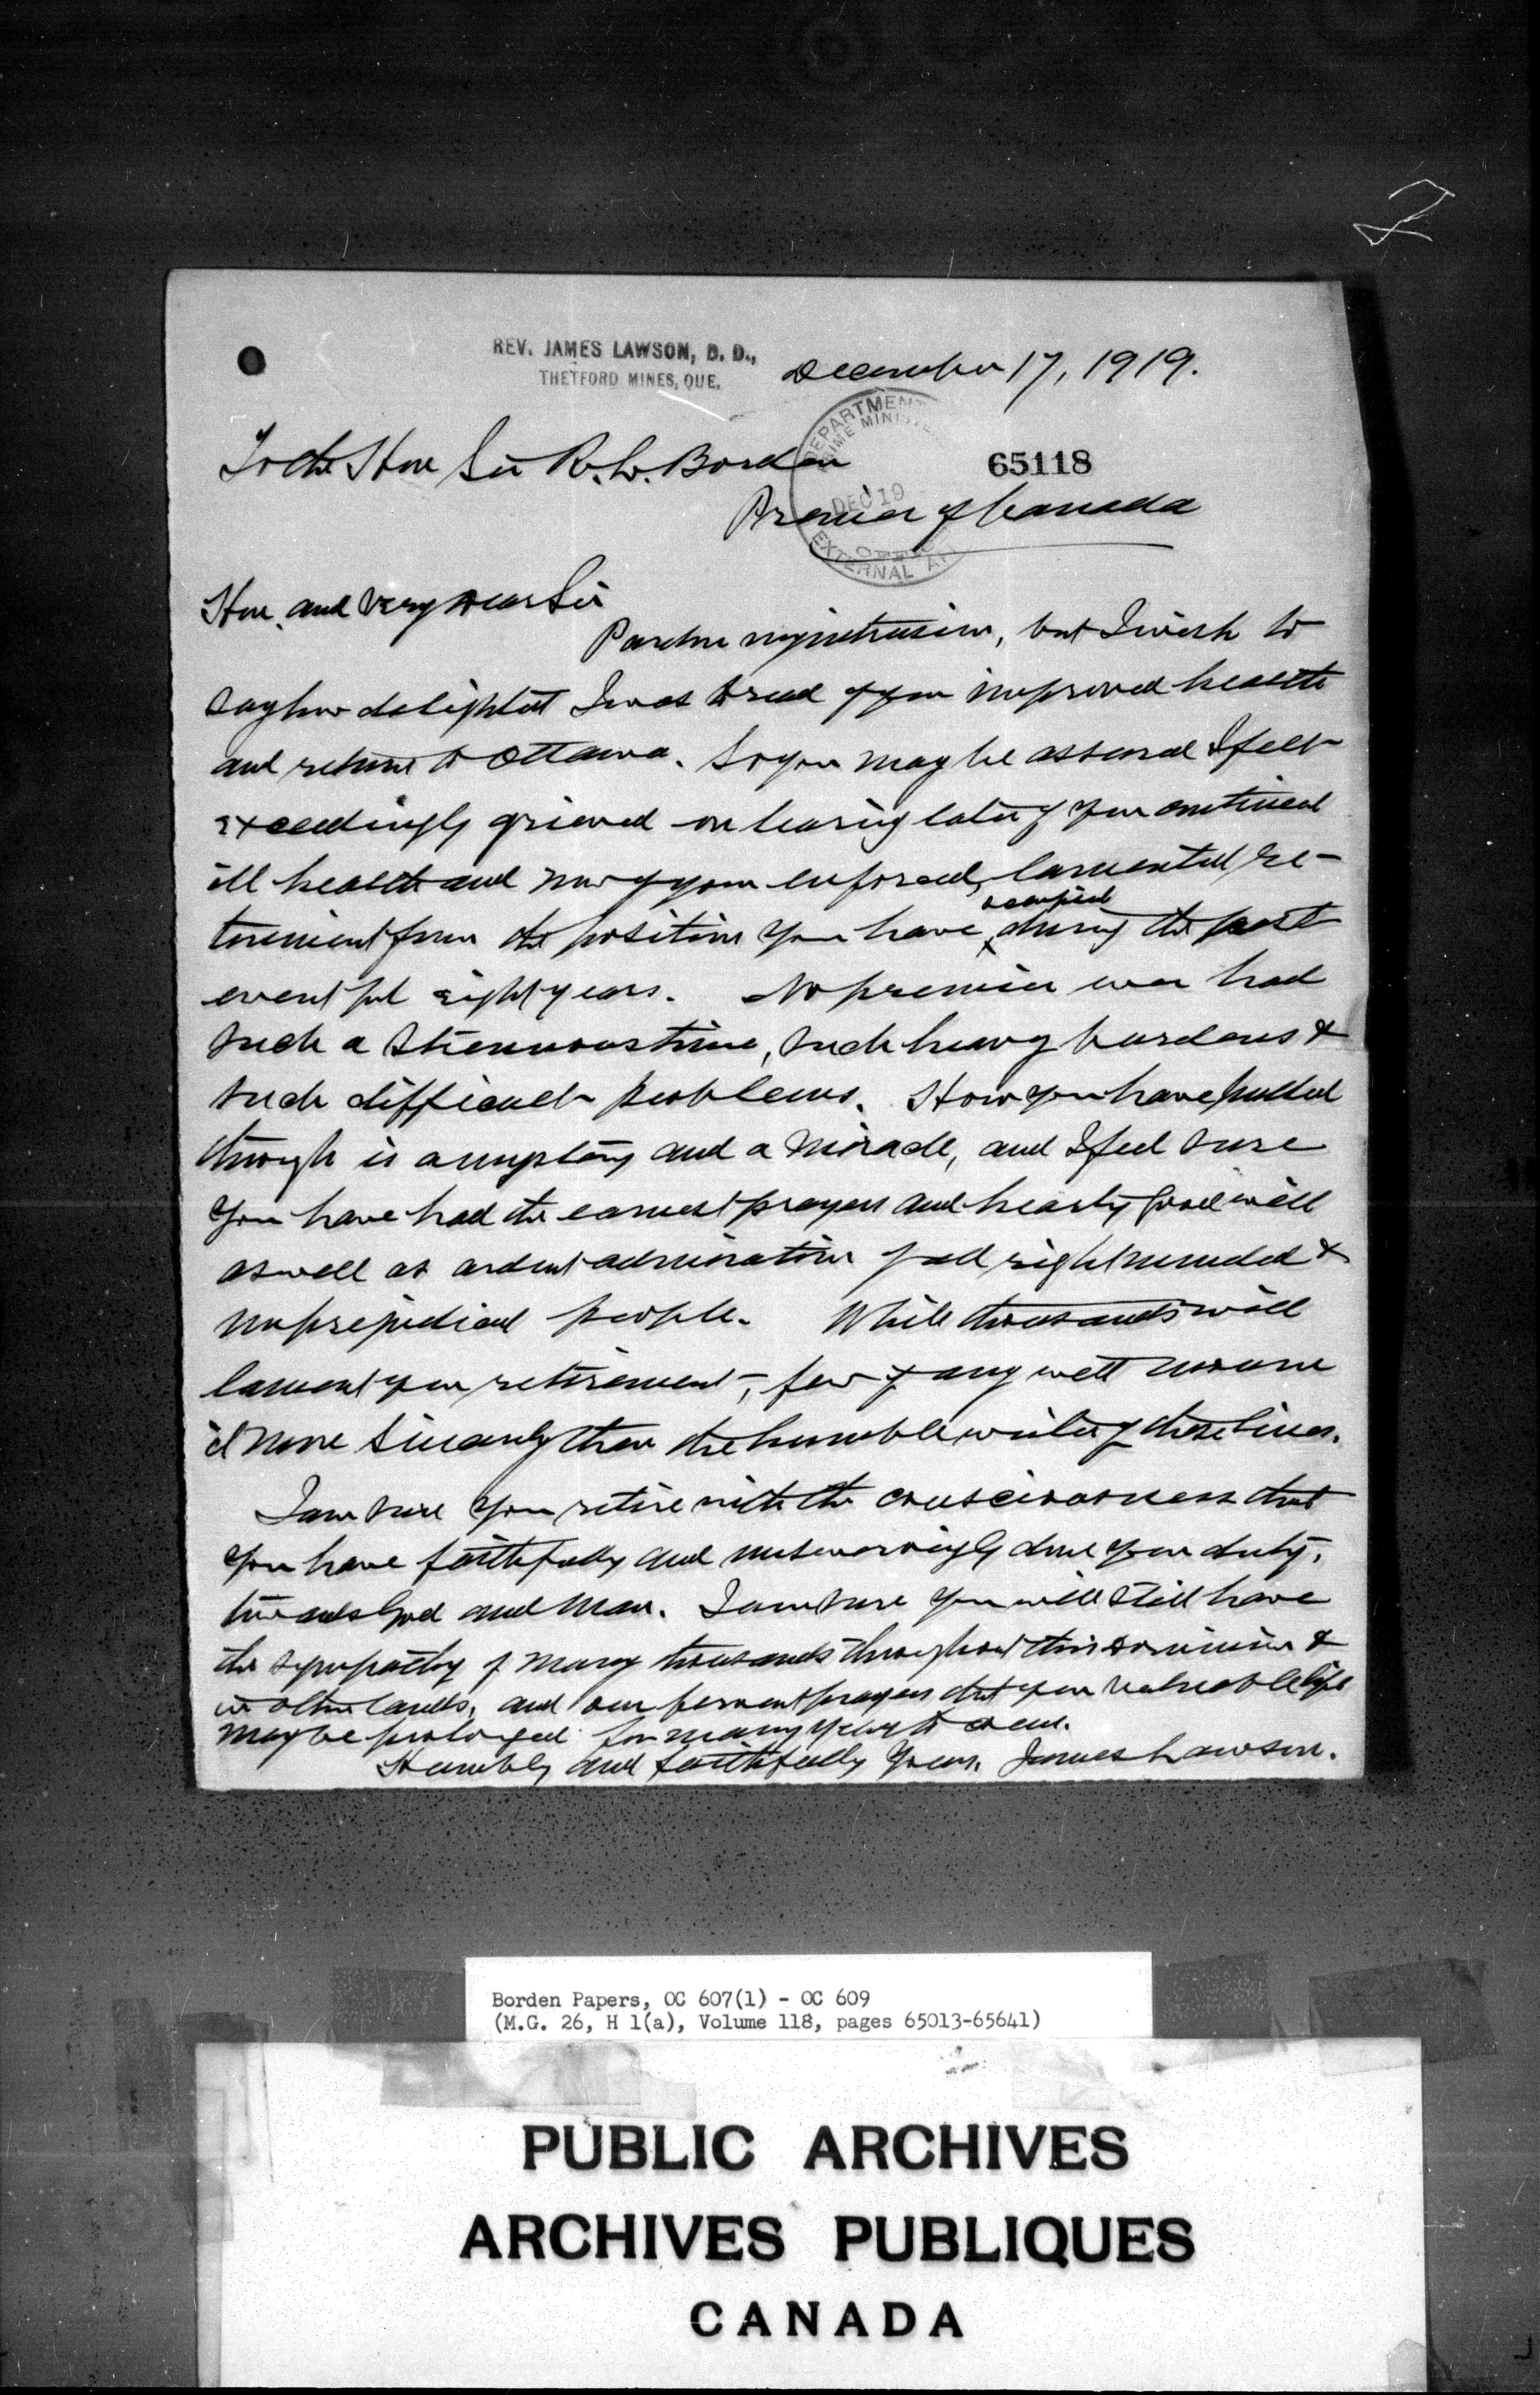 2
REV. JAMES LAWSON, D. D.,
THETFORD MINES, QUE.
December 17, 1919.
DEPARTMENT
PRIME MINISTE
DEC 19
EXTERNAL AF
To the Hon Sir R. L. Borden
65118
Premier of Canada
Hon. and very Dear Sir
Pardon my intrusion, but I wish to
say how delighted I was to read of your improved health
and return to Ottawa. So you may be assured I felt
exceedingly grieved on hearing later of your continued
ill health and now of your enforced, lamented re-
tirement from the position you have occupied during the past
eventful eight years. No premier ever had
such a strenuous time, such heavy burdens &
such difficult problems. How you have pulled
through is a mystery and a miracle, and I feel sure
you have had the earnest prayers and hearty good will
as well as ardent admiration of all right minded &
unprejudiced people. While thousands will
lament your retirement, few if any will mourn
it more sincerely than the humble writer of these lines.
I am sure you retire with the consciousness that
you have faithfully and unswervingly done your duty,
towards God and man. I am sure you will still have
the sympathy of many thousands throughout this Dominion &
in other lands, and our fervent prayers that your valuable life
may be prolonged for many years to come.
Humbly and faithfully yours, James Lawson.
Borden Papers, OC 607(1) - OC 609
(M.G. 26, H 1(a), Volume 118, pages 65013-65641)
PUBLIC ARCHIVES
ARCHIVES PUBLIQUES
CANADA